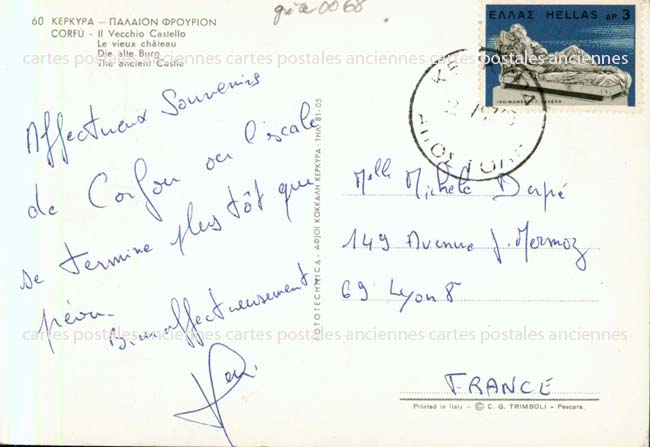 grèce 0068
60 ΚΕΡΚΥΡΑ — ΠΑΛΑΙΟΝ ΦΡΟΥΡΙΟΝ
CORFÙ - Il Vecchio Castello
Le vieux château
Die alte Burg
The ancient Castle
ΕΛΛΑΣ HELLAS ΔΡ. 3
ΚΕΡΚΥΡΑ
Affectueux Souvenirs
de Corfou où l'escale
se termine plus tôt que
prévu.
Bien affectueusement
FOTOTECHNICA - ΑΦΟΙ ΚΟΚΚΑΛΗ ΚΕΡΚΥΡΑ - ΤΗΛ. 81-05
Melle Michele
149 Avenue J. Mermoz
69 Lyon 8
FRANCE
Printed in Italy - © C. G. TRIMBOLI - Pescara
cartes postales anciennes cartes postales anciennes cartes postales anciennes
cartes postales anciennes cartes postales anciennes cartes postales anciennes
cartes postales anciennes cartes postales anciennes cartes postales anciennes